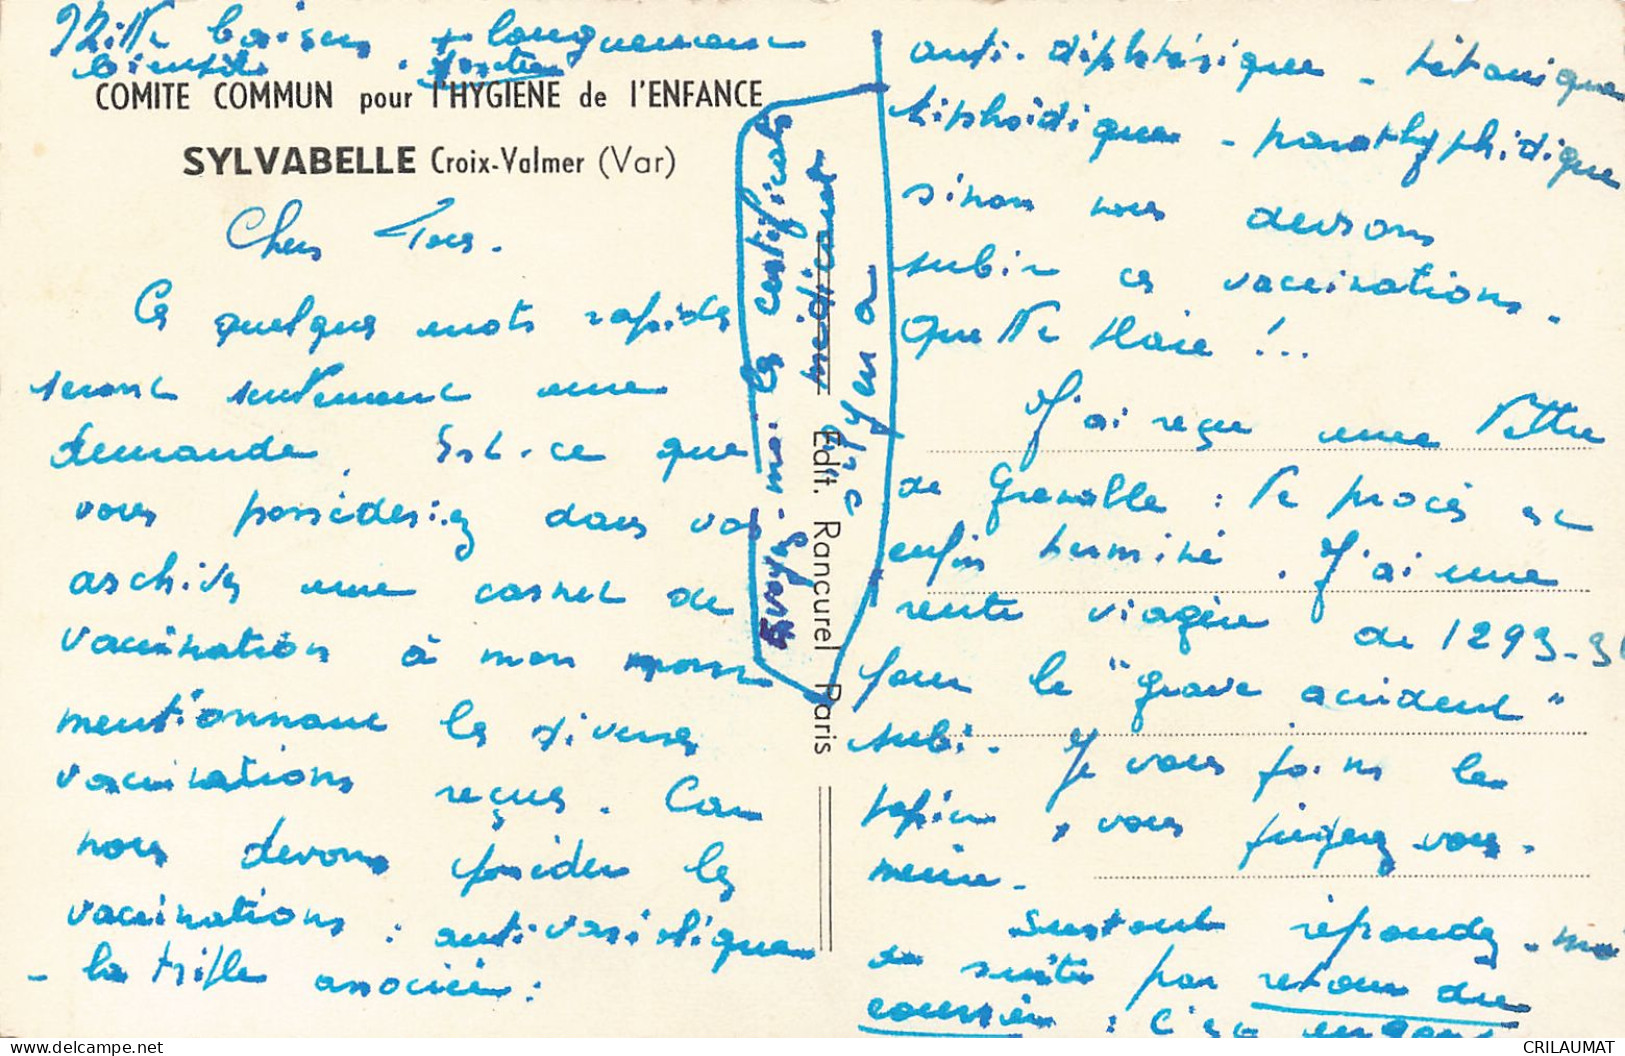 Mille baisers + longuement
bientôt.
COMITE COMMUN pour l'HYGIENE de l'ENFANCE
SYLVABELLE Croix-Valmer (Var)
Chers Tous.
Ces quelques mots rapides
seront seulement une
demande. Est-ce que
vous posséderiez dans vos
archives une carnet de
vaccination à mon nom
mentionnant les diverses
vaccinations reçues. Car
nous devons posséder les
vaccinations : antivariolique
- la triple associée :
Envoyez-moi les certificats
médicaux
s'il y en a
Edit. Rancurel Paris
anti-diphtérique - tétanique
tiphoïdique - parathyphidique
sinon nous devons
subir ces vaccinations.
Quelle Haire !...
J'ai reçu une lettre
de Grenoble : le procès est
enfin terminé. J'ai une
rente viagère de 1293-3
pour le "grave accident"
subi. Je vous joins le
papier, vous jugerez vous-
même.
Surtout répondez-moi
de suite par retour du
courrier : c'est urgent
CRILAUMAT